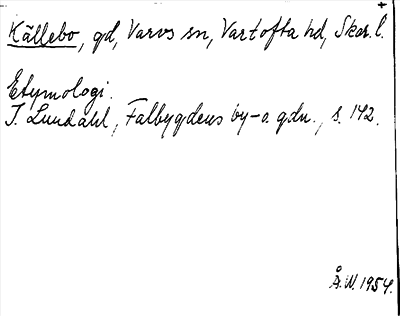 Källebo, gd, Varvs sn, Vartofta hd, Skar. l.
Etymologi.
I. Lundahl, Falbygdens by- o. gdn., s. 142.
Å. W. 1954.